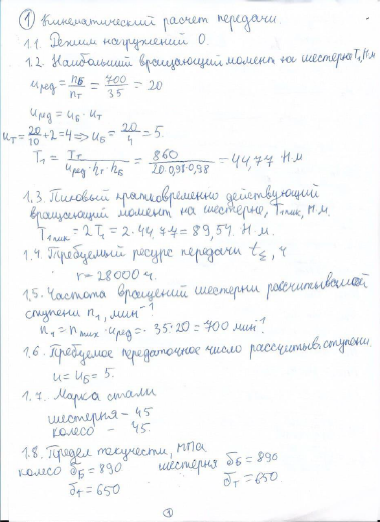 ① Кинематический расчет передачи.
1.1. Режим нагружений 0.
1.2. Наибольший вращающий момент на шестерне T₁, Н.м
uред = nБ/nТ = 700/35 = 20
uред = uБ · uТ
uТ = 20/10 + 2 = 4 ⇒ uБ = 20/4 = 5.
T₁ = TТ/(uред · hТ · hБ) = 860/(20·0,98·0,98) = 44,77 Н.м
1.3. Пиковый кратковременно действующий
вращающий момент на шестерне, T₁пик, Н.м.
T₁пик = 2T₁ = 2·44,77 = 89,54 Н.м.
1.4. Требуемый ресурс передачи tΣ, ч
r = 28000 ч.
1.5. Частота вращений шестерни рассчитываемой
ступени n₁, мин⁻¹
n₁ = nтих · uред = 35·20 = 700 мин⁻¹.
1.6. Требуемое передаточное число рассчитыв. ступени.
u = uБ = 5.
1.7. Марка стали
шестерня – 45
колесо – 45.
1.8. Предел текучести, мПа
колесо бБ = 890 шестерня бБ = 890
бт = 650 бт = 650.
①